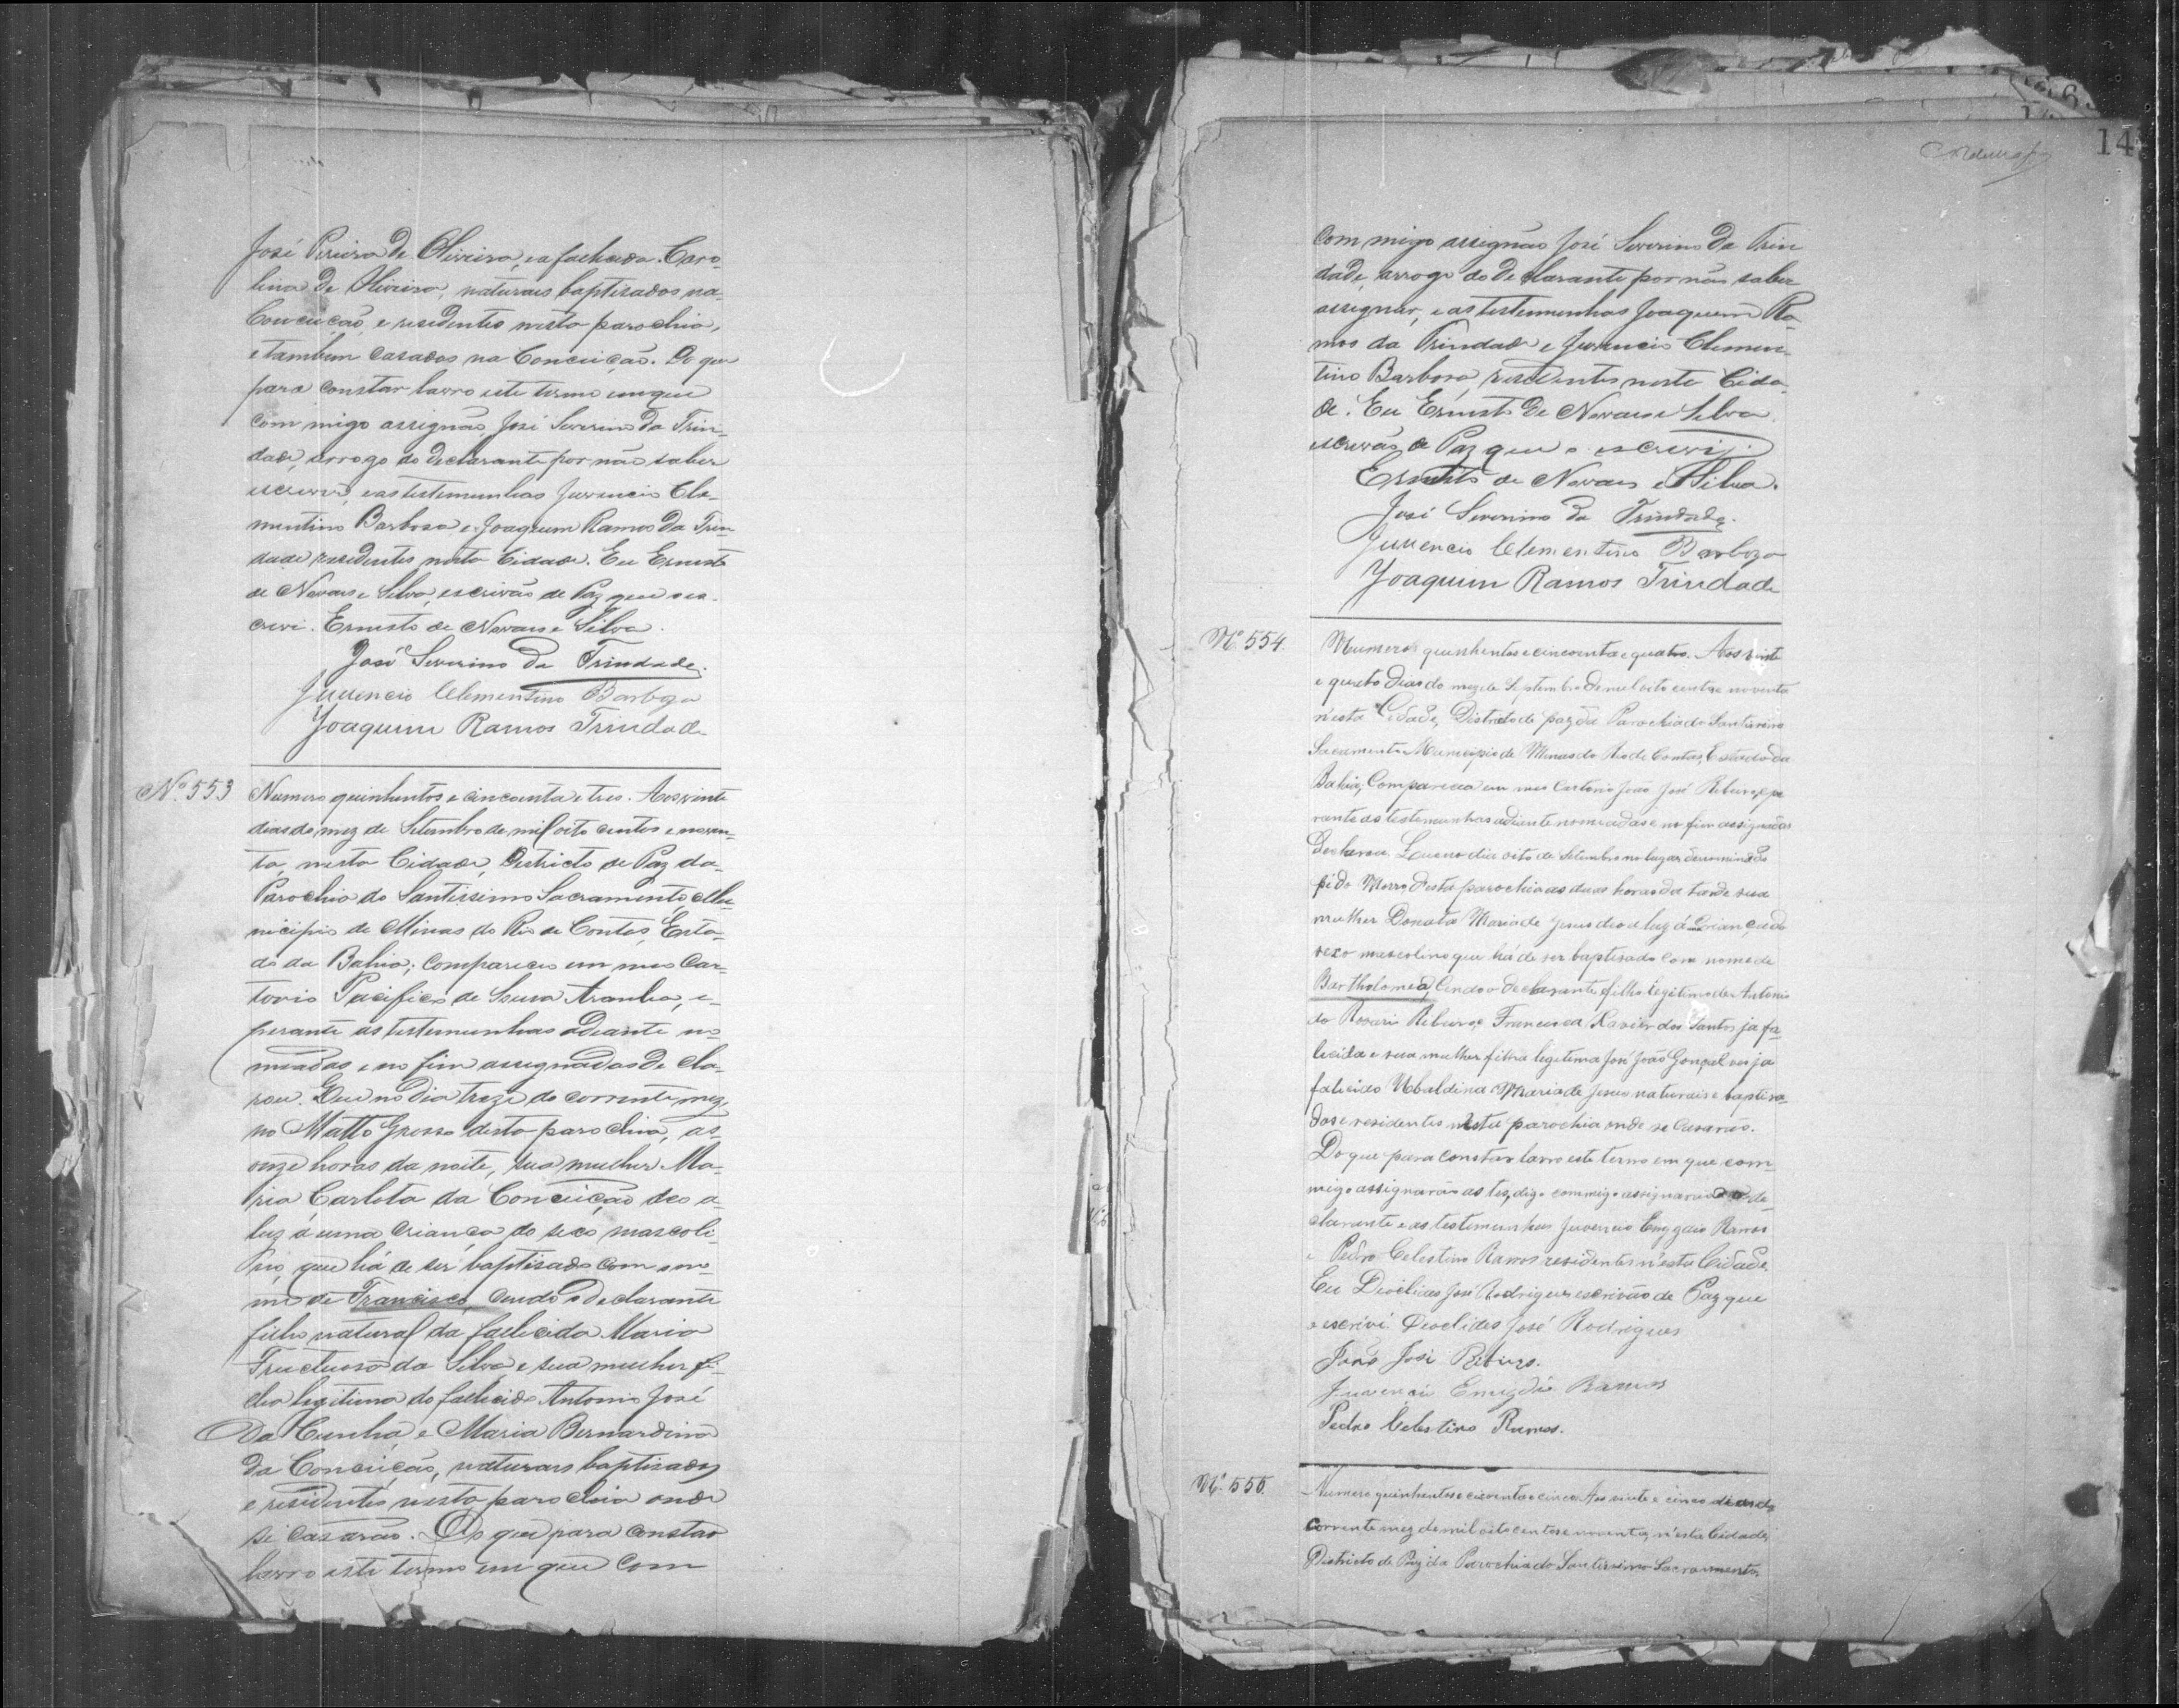 José Pereira de Oliveira, e a falhecida Caro-
lina de Oliveira, naturais baptisados na
Conceição, e residentes nesta parochia,
e tambem casados na Conceição. Do que
para constar lavro este termo em que
com migo assignão, José Severino da Trin-
dade, arrogo do declarante por não saber
escrever, e as testemunhas Juvencio Cle-
mentino Barbosa e Joaquim Ramos da Trin-
dade residentes nesta Cidade. Eu Ernesto
de Novaes e Silva, escrivão de Paz que o es-
crevi. Ernesto de Novaes e Silva.
José Severino da Trindade.
Juvencio Clementino Barboza
Joaquim Ramos Trindade
Nº 553
Numero quinhentos e cincoenta e tres. Aos vinte
dias do mez de Setembro de mil oito centos e noven-
ta, nesta Cidade, Districto de Paz da
Parochia do Santissimo Sacramento, Mu-
nicipio de Minas do Rio de Contas, Esta-
do da Bahia; compareceu em meu Car-
torio Pacifico de Aranha, e
perante as testemunhas adiante no-
meadas e no fim assignadas de cla-
rou. Que no dia treze do corrente mez,
no Matto Grosso desta parochia, as
onze horas da noite, sua mulher Ma-
ria Carlota da Conceição deo a
luz a uma criança do sexo mascoli-
no, que há de ser baptisado com o no-
me de Francisco, cendo o declarante
filho natural da falhecida Maria
Fructuosa da Silva e sua mulher fi-
lha legitima do falhecido Antonio José
da Cunha e Maria Bernardina
da Conceição, naturais baptisados
e residentes nesta parochia onde
se casarão. Do que para constar
lavro este termo em que com
14
Com migo assignão José Severino da Trin
dade, arrogo do de clarante por não saber
assignar, e as testemunhas Joaquim Ra-
mos da Trindade e Juvencio Clemen-
tino Barbosa, residentes nesta Cida-
de. Eu Ernesto de Novaes e Silva
escrivão de Paz que o escrevi.
Ernesto de Novaes e Silva.
José Severino da Trindade.
Juvencio Clementino Barboza
Joaquim Ramos Trindade
Nº 554.
Numero quinhentos e cincoenta e quatro. Aos vinte
e quatro dias do mez de Septembro de mil oito centos e noventa
n'esta Cidade, Districto de paz da Parochia do Santissimo
Sacramento Municipio de Minas do Rio de Contas, Estado da
Bahia, Compareceo em meu Cartorio João José Ribeiro, e pe
rante as testemunhas adiante nomeadas e no fim assignadas
Declarou. Que no dia oito de Setembro no lugar denominado
pé do Morro, desta parochia as duas horas da tarde sua
mulher Donata Maria de Jesus deo a luz á uma criança do
sexo mascolino que há de ser baptisado com nome de
Bartholomeo, Cendo o declarante filho legitimo de Antonio
do Rosario Ribeiro, e Francisca Xavier dos Santos ja fa-
lecida e sua mulher filha legitima José João Gonçalves ja
falecido Ubaldina Maria de Jesus naturais e baptisa-
dos e residentes nesta parochia onde se Casarão.
Do que para constar lavro este termo em que com-
migo assignarão as tes, digo commigo assignarão o de-
clarante e as testemunhas Juvencio Emygdio Ramos
e Pedro Celestino Ramos residentes n'esta Cidade.
Eu Deoclides José Rodrigues escrivão de Paz que
o escrivi. Deoclides José Rodrigues
João José Ribeiro.
Juvencio Emygdio Ramos
Pedro Celestino Ramos.
Nº 555.
Numero quinhentos e cincoenta e cinco. Aos vinte e cinco dias do
corrente mez de mil oito centos e noventa, n'esta Cidade,
Districto de Paz da Parochia do Santissimo Sacramento